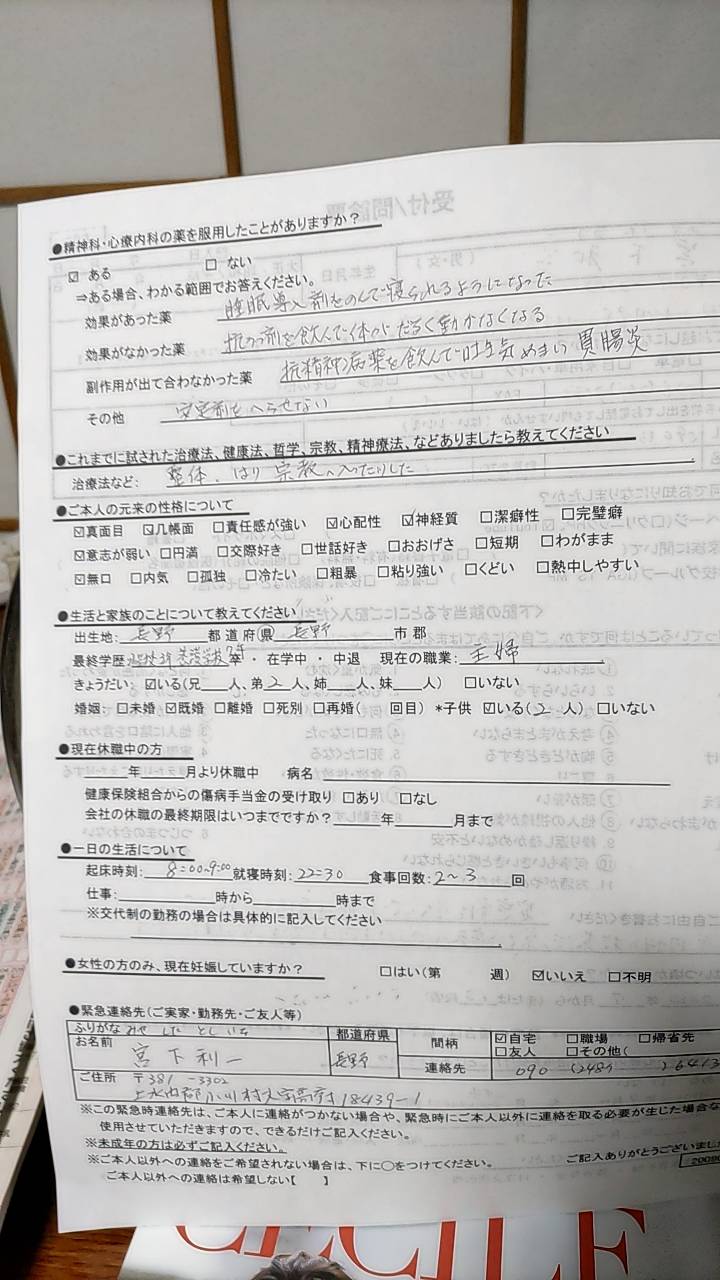 ●精神科・心療内科の薬を服用したことがありますか？
☑ ある　□ ない
⇒ある場合、わかる範囲でお答えください。
効果があった薬　睡眠導入剤をのんで寝られるようになった
効果がなかった薬　抗うつ剤を飲んで体がだるく動かなくなる
副作用が出て合わなかった薬　抗精神病薬を飲んで吐き気めまい胃腸炎
その他　安定剤をへらせない
●これまでに試された治療法、健康法、哲学、宗教、精神療法、などありましたら教えてください
治療法など：　整体、はり 宗教へ入ったりした
●ご本人の元来の性格について
☑真面目 ☑几帳面 □責任感が強い ☑心配性 ☑神経質 □潔癖性 □完璧癖
☑意志が弱い □円満 □交際好き □世話好き □おおげさ □短期 □わがまま
☑無口 □内気 □孤独 □冷たい □粗暴 □粘り強い □くどい □熱中しやすい
●生活と家族のことについて教えてください
出生地： 長野 都 道 府 県 長野 市 郡
最終学歴 卒 ・ 在学中 ・ 中退 現在の職業： 主婦
きょうだい： ☑いる(兄　人、弟 2 人、姉　人、妹　人) □いない
婚姻： □未婚 ☑既婚 □離婚 □死別 □再婚(　回目) *子供 ☑いる( 2 人) □いない
●現在休職中の方
年　月より休職中　病名
健康保険組合からの傷病手当金の受け取り □あり □なし
会社の休職の最終期限はいつまでですか？　年　月まで
●一日の生活について
起床時刻： 8:00~9:00 就寝時刻： 22:30 食事回数： 2～3 回
仕事：　時から　時まで
※交代制の勤務の場合は具体的に記入してください
●女性の方のみ、現在妊娠していますか？　□はい(第　週) ☑いいえ □不明
●緊急連絡先(ご実家・勤務先・ご友人等)
ふりがな みやした としいち 都道府県 間柄 ☑自宅 □職場 □帰省先
お名前 宮下利一 長野 □友人 □その他(
連絡先 090 (2485 ) 6413
ご住所 〒381-3302
上水内郡小川村大字高府 18439-1
※この緊急時連絡先は、ご本人に連絡がつかない場合や、緊急時にご本人以外に連絡を取る必要が生じた場合な
使用させていただきますので、できるだけご記入ください。
※未成年の方は必ずご記入ください。
※ご本人以外への連絡をご希望されない場合は、下に○をつけてください。　ご記入ありがとうございまし
ご本人以外への連絡は希望しない【　】
CECILE